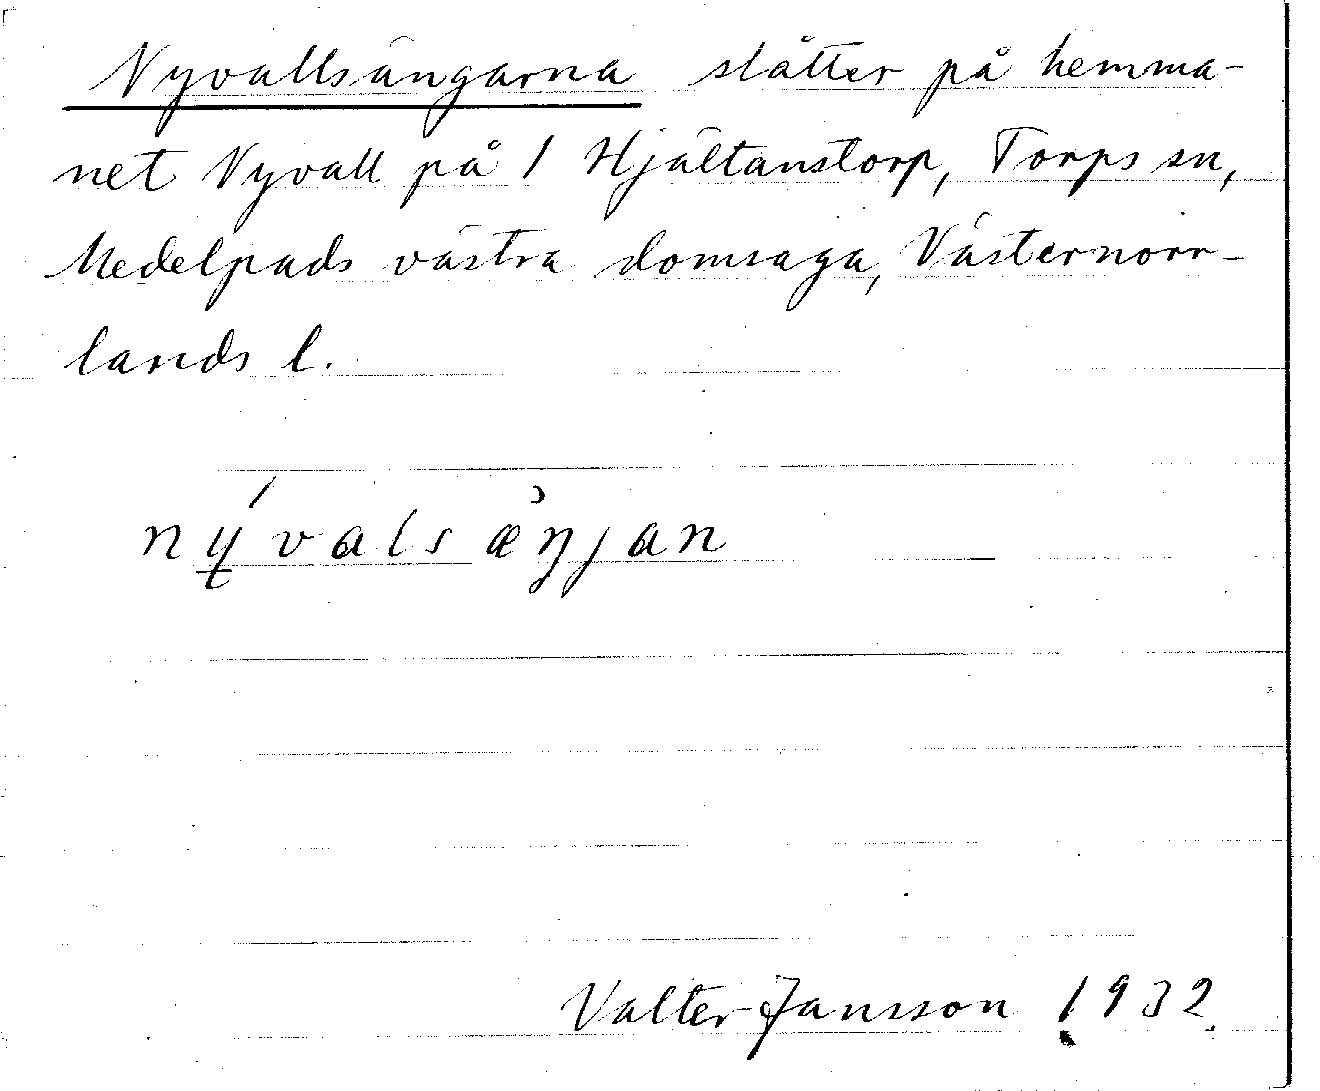 Nyvallsängarna slåtter på hemma-
net Nyvall på 1 Hjältanstorp, Torps sn,
Medelpads västra domsaga, Västernorr-
lands l.
nývalsæŋjan
Valter Jansson 1932.